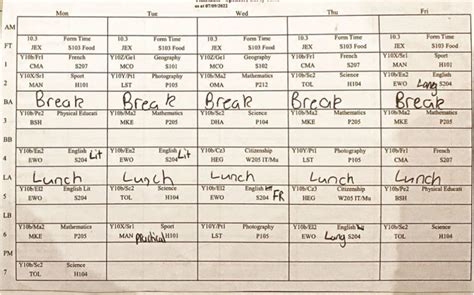 as at 07/09/2022
Mon Tue Wed Thu Fri
AM
10.3 Form Time 10.3 Form Time 10.3 Form Time 10.3 Form Time 10.3 Form Time
FT JEX S103 Food JEX S103 Food JEX S103 Food JEX S103 Food JEX S103 Food
Y10b/Fr1 French Y10Z/Ge1 Geography Y10Z/Ge1 Geography Y10X/Sr1 Sport Y10b/Fr1 French
1 CMA S207 MCO S101 MCO S102 MAN H101 CMA S207
Y10X/Sr1 Sport Y10Y/Pt1 Photography Y10b/Ma2 Mathematics Y10b/Sc2 Science Y10b/En2 English
2 MAN H101 LST P105 OMA P212 TOL H104 EWO Lang S204
BA Break Break Break Break Break
Y10b/Pe2 Physical Educati Y10b/Ma2 Mathematics Y10b/Sc2 Science Y10b/Ma2 Mathematics Y10b/Ma2 Mathematics
3 BSH MKE P205 DHA P104 MKE P205 MKE P205
BB
Y10b/El2 English Lit Y10b/En2 English Lit Y10b/Cz3 Citizenship Y10Y/Pt1 Photography Y10b/Fr1 French
4 EWO S204 EWO S204 HEG W205 IT/Mu LST P105 CMA S207
LA Lunch Lunch Lunch Lunch Lunch
Y10b/El2 English Lit Y10b/Sc2 Science Y10b/El2 English FR Y10b/Cz3 Citizenship Y10b/Pe2 Physical Educati
5 EWO S204 TOL H104 EWO S204 HEG W205 IT/Mu BSH
LB
Y10b/Ma2 Mathematics Y10X/Sr1 Sport Y10Y/Pt1 Photography Y10b/El2 English Y10b/Sc2 Science
6 MKE P205 MAN Practical H101 LST P105 EWO Lang S204 TOL H104
PM
Y10b/Sc2 Science
7 TOL H104